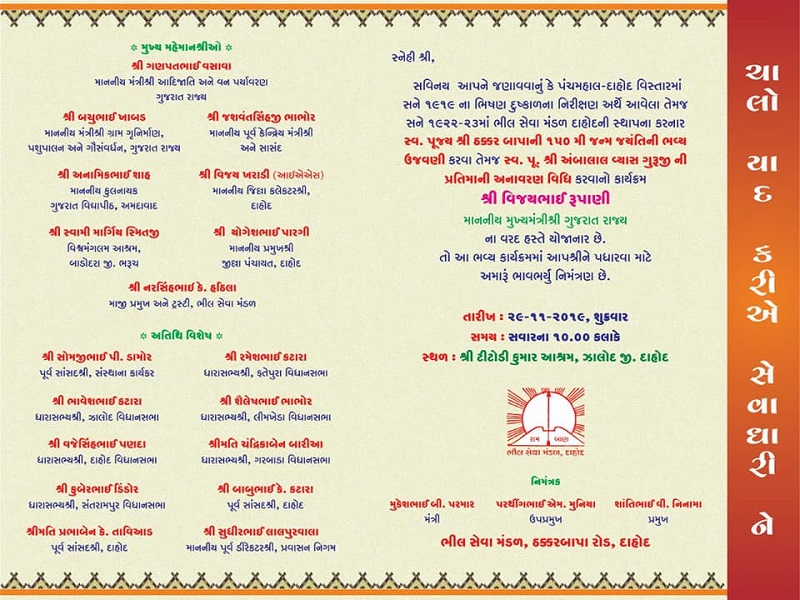 * મુખ્ય મહેમાનશ્રીઓ *
શ્રી ગણપતભાઈ વસાવા
માનનીય મંત્રીશ્રી આદિજાતિ અને વન પર્યાવરણ
ગુજરાત રાજ્ય
શ્રી બચુભાઈ ખાબડ
માનનીય મંત્રીશ્રી ગ્રામ ગૃનિર્માણ,
પશુપાલન અને ગૌસંવર્ધન, ગુજરાત રાજ્ય
શ્રી જશવંતસિંહજી ભાભોર
માનનીય પૂર્વ કેન્દ્રિય મંત્રીશ્રી
અને સાસંદ
શ્રી અનામિકભાઈ શાહ
માનનીય કુલનાયક
ગુજરાત વિદ્યાપીઠ, અમદાવાદ
શ્રી વિજય ખરાડી (આઈએએસ)
માનનીય જિલ્લા કલેકટરશ્રી,
દાહોદ
શ્રી સ્વામી માર્ગિય સ્મિતજી
વિશ્વમંગલમ આશ્રમ,
બાડોદરા જી. ભરૂચ
શ્રી યોગેશભાઈ પારગી
માનનીય પ્રમુખશ્રી
જીલ્લા પંચાયત, દાહોદ
શ્રી નરસિંહભાઈ કે. હઠિલા
માજી પ્રમુખ અને ટ્રસ્ટી, ભીલ સેવા મંડળ
* અતિથિ વિશેષ *
શ્રી સોમજીભાઈ પી. ડામોર
પૂર્વ સાંસદશ્રી, સંસ્થાના કાર્યકર
શ્રી રમેશભાઈ કટારા
ધારાસભ્યશ્રી, ફતેપુરા વિધાનસભા
શ્રી ભાવેશભાઈ કટારા
ધારાસભ્યશ્રી, ઝાલોદ વિધાનસભા
શ્રી શૈલેષભાઈ ભાભોર
ધારાસભ્યશ્રી, લીમખેડા વિધાનસભા
શ્રી વજેસિંહભાઈ પણદા
ધારાસભ્યશ્રી, દાહોદ વિધાનસભા
શ્રીમતિ ચંદ્રિકાબેન બારીઆ
ધારાસભ્યશ્રી, ગરબાડા વિધાનસભા
શ્રી કુબેરભાઈ ડિંડોર
ધારાસભ્યશ્રી, સંતરામપુર વિધાનસભા
શ્રી બાબુભાઈ કે. કટારા
પૂર્વ સાંસદશ્રી, દાહોદ
શ્રીમતિ પ્રભાબેન કે. તાવિઆડ
પૂર્વ સાંસદશ્રી, દાહોદ
શ્રી સુધીરભાઈ લાલપુરવાલા
માનનીય પૂર્વ ડીરેક્ટરશ્રી, પ્રવાસન નિગમ
સ્નેહી શ્રી,
સવિનય આપને જણાવવાનું કે પંચમહાલ-દાહોદ વિસ્તારમાં
સને ૧૯૧૯ ના ભિષણ દુષ્કાળના નિરીક્ષણ અર્થે આવેલા તેમજ
સને ૧૯૨૨-૨૩માં ભીલ સેવા મંડળ દાહોદની સ્થાપના કરનાર
સ્વ. પૂજ્ય શ્રી ઠક્કર બાપાની ૧૫૦ મી જન્મ જયંતિની ભવ્ય
ઉજવણી કરવા તેમજ સ્વ. પૂ. શ્રી અંબાલાલ વ્યાસ ગુરૂજી ની
પ્રતિમાની અનાવરણ વિધિ કરવાનો કાર્યક્રમ
શ્રી વિજયભાઈ રૂપાણી
માનનીય મુખ્યમંત્રીશ્રી ગુજરાત રાજ્ય
ના વરદ હસ્તે યોજાનાર છે.
તો આ ભવ્ય કાર્યક્રમમાં આપશ્રીને પધારવા માટે
અમારૂં ભાવભર્યુ નિમંત્રણ છે.
તારીખ : ૨૯-૧૧-૨૦૧૯, શુક્રવાર
સમય : સવારના ૧૦.૦૦ કલાકે
સ્થળ : શ્રી ટીટોડી કુમાર આશ્રમ, ઝાલોદ જી. દાહોદ
રામ બાણ
ભીલ સેવા મંડળ, દાહોદ
નિમંત્રક
મુકેશભાઈ બી. પરમાર
મંત્રી
પરથીંગભાઈ એમ. મુનિયા
ઉપપ્રમુખ
શાંતિભાઈ વી. નિનામા
પ્રમુખ
ભીલ સેવા મંડળ, ઠક્કરબાપા રોડ, દાહોદ
ચાલો યાદ કરીએ સેવાધારી ને